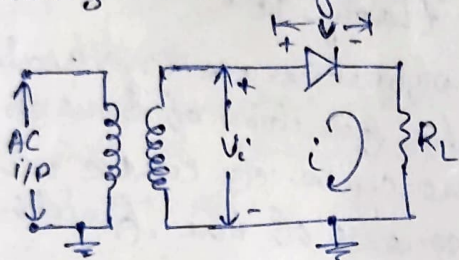 + -
AC
i/p
+
Vi
-
i
RL